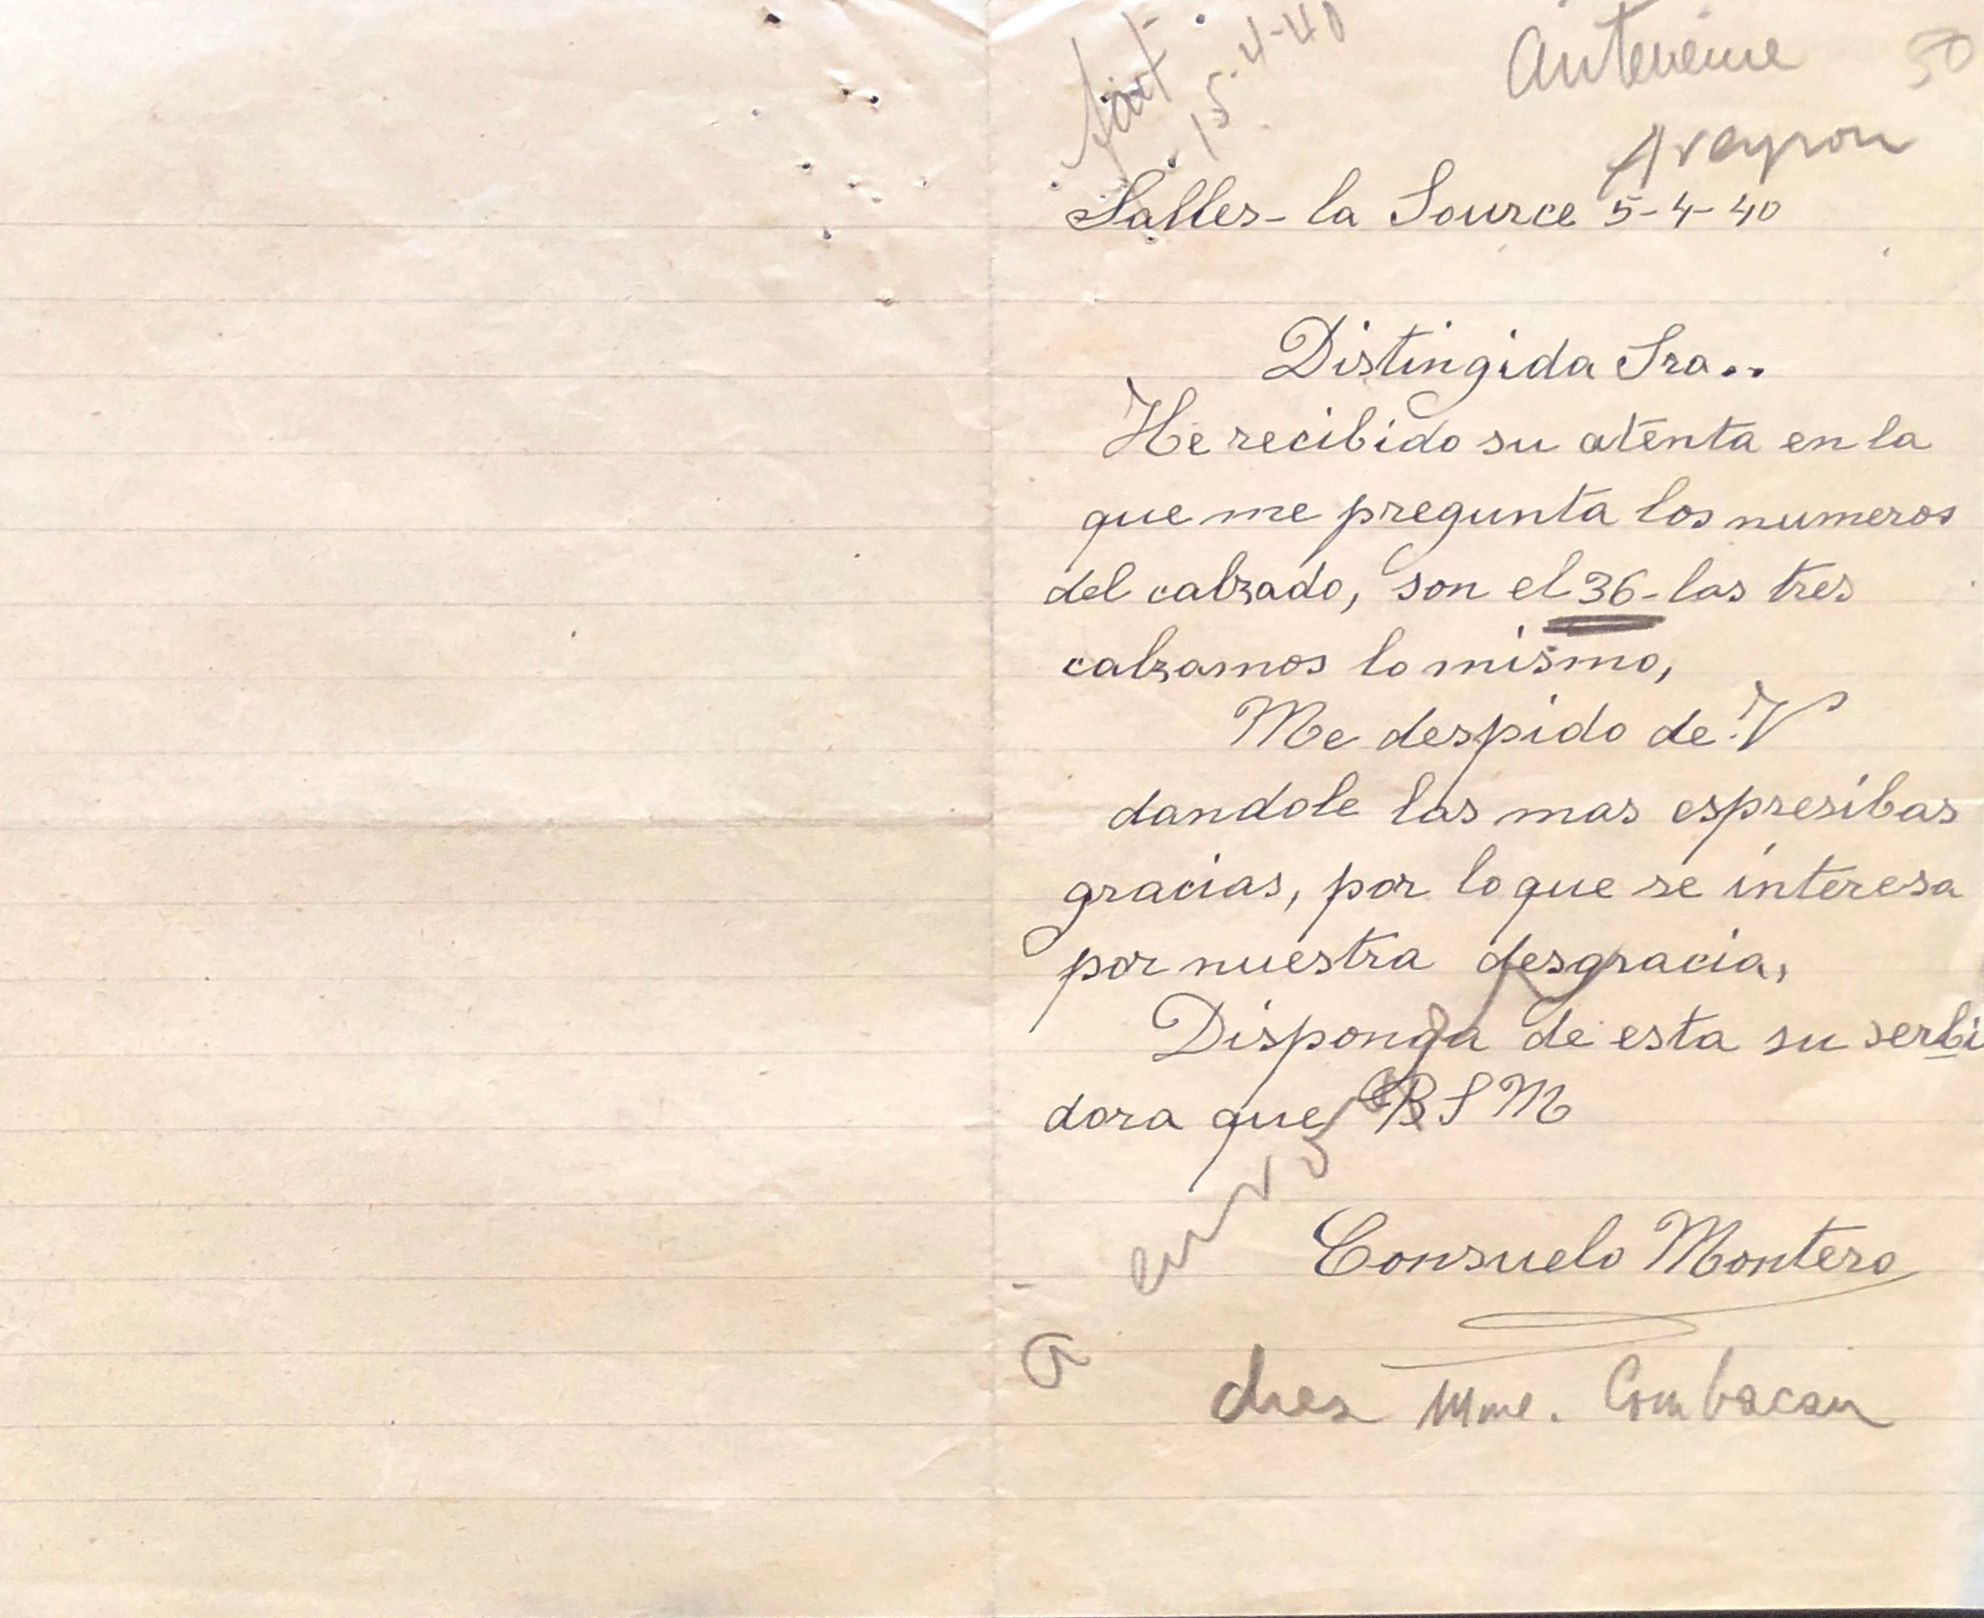 fait 15-4-40
50
Aveyron
Salles-la Source 5-4-40
Distingida Sra..
He recibido su atenta en la
que me pregunta los numeros
del calzado, son el 36- las tres
calzamos lo mismo,
Me despido de V
dandole las mas espresibas
gracias, por lo que se interesa
por nuestra desgracia,
Disponga de esta su serbi
dora que BSM
Consuelo Montero
chez Mme. Combacau